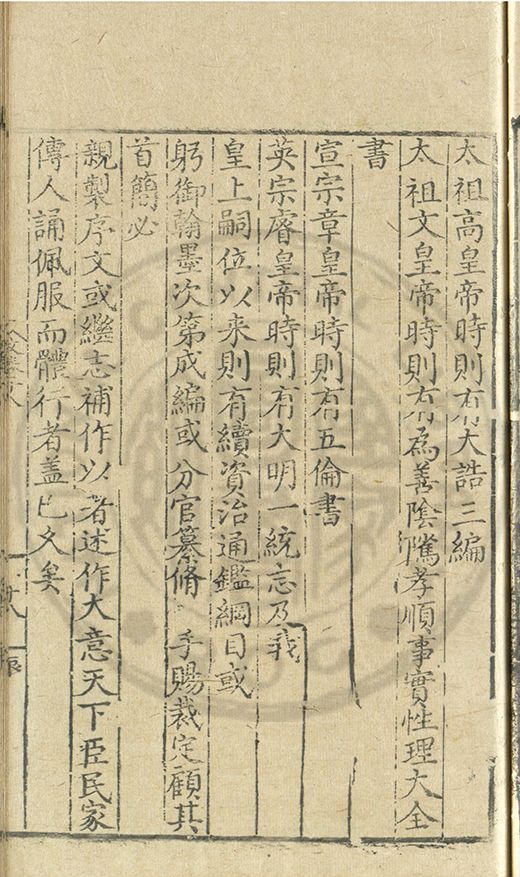 太祖高皇帝時則有大誥三編
太祖文皇帝時則有為善陰隲孝順事實性理大全
書
宣宗章皇帝時則有五倫書
英宗睿皇帝時則有大明一統志及我
皇上嗣位以来則有續資治通鑑綱目或
躬御翰墨次第成編或分官纂脩手賜裁定顧其
首簡必
親製序文或繼志補作以著述作大意天下臣民家
傳人誦佩服而體行者盖已久矣